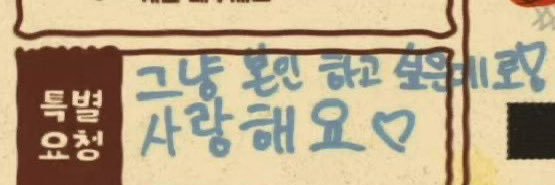 특별
요청
그냥 본인 하고 싶은데로♡
사랑해요♡